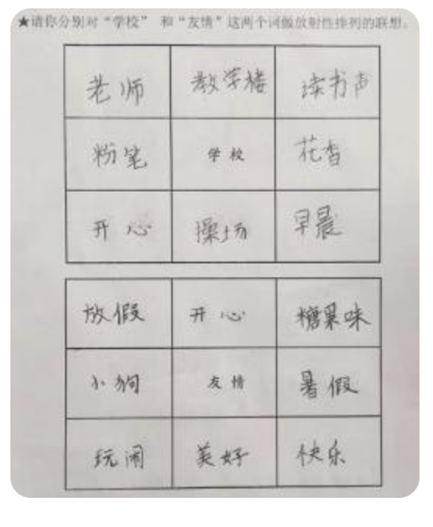 ★请你分别对“学校” 和“友情”这两个词做放射性排列的联想。
老师 教学楼 读书声
粉笔 学校 花香
开心 操场 早晨
放假 开心 糖果味
小狗 友情 暑假
玩闹 美好 快乐